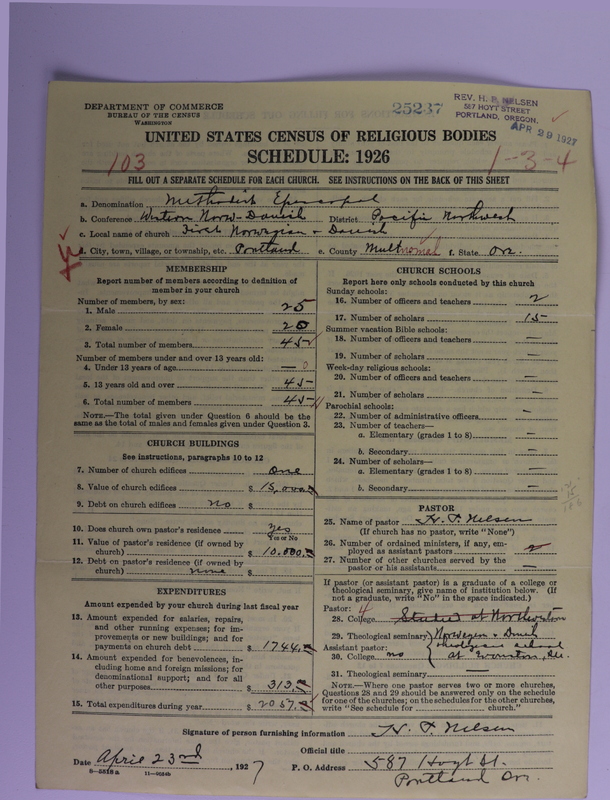 DEPARTMENT OF COMMERCE
BUREAU OF THE CENSUS
WASHINGTON
25237
REV. H. P. NELSEN
587 HOYT STREET
PORTLAND, OREGON.
APR 29 1927
UNITED STATES CENSUS OF RELIGIOUS BODIES
SCHEDULE: 1926
103
1-3-4
FILL OUT A SEPARATE SCHEDULE FOR EACH CHURCH. SEE INSTRUCTIONS ON THE BACK OF THIS SHEET
a. Denomination Methodist Episcopal
b. Conference Western Norw-Danish District Pacific Northwest
c. Local name of church First Norwegian & Danish
d. City, town, village, or township, etc. Portland e. County Multnomah f. State Ore.
MEMBERSHIP
Report number of members according to definition of member in your church
Number of members, by sex:
1. Male 25
2. Female 20
3. Total number of members 45
Number of members under and over 13 years old:
4. Under 13 years of age — 0
5. 13 years old and over 45
6. Total number of members 45
NOTE.—The total given under Question 6 should be the same as the total of males and females given under Question 3.
CHURCH BUILDINGS
See instructions, paragraphs 10 to 12
7. Number of church edifices one
8. Value of church edifices $ 15,000
9. Debt on church edifices no $
10. Does church own pastor's residence yes
Yes or No
11. Value of pastor's residence (if owned by church) $ 10,000
12. Debt on pastor's residence (if owned by church) none $
EXPENDITURES
Amount expended by your church during last fiscal year
13. Amount expended for salaries, repairs, and other running expenses; for improvements or new buildings; and for payments on church debt $ 1744
14. Amount expended for benevolences, including home and foreign missions; for denominational support; and for all other purposes $ 313
15. Total expenditures during year $ 2057
CHURCH SCHOOLS
Report here only schools conducted by this church
Sunday schools:
16. Number of officers and teachers 2
17. Number of scholars 15
Summer vacation Bible schools:
18. Number of officers and teachers —
19. Number of scholars —
Week-day religious schools:
20. Number of officers and teachers —
21. Number of scholars —
Parochial schools:
22. Number of administrative officers —
23. Number of teachers—
a. Elementary (grades 1 to 8) —
b. Secondary —
24. Number of scholars—
a. Elementary (grades 1 to 8) —
b. Secondary —
PASTOR
25. Name of pastor H. P. Nelsen
(If church has no pastor, write "None")
26. Number of ordained ministers, if any, employed as assistant pastors
27. Number of other churches served by the pastor or his assistants —
If pastor (or assistant pastor) is a graduate of a college or theological seminary, give name of institution below. (If not a graduate, write "No" in the space indicated.)
Pastor: 4
28. College Studied at Northwestern
29. Theological seminary Norwegian & Danish
Theological school
at Evanston, Ill.
Assistant pastor:
30. College no
31. Theological seminary —
NOTE.—Where one pastor serves two or more churches, Questions 28 and 29 should be answered only on the schedule for one of the churches; on the schedules for the other churches, write "See schedule for ........ church."
Signature of person furnishing information H. P. Nelsen
Official title
Date April 23rd, 1927 P. O. Address 587 Hoyt St.
Portland Ore.
8—5518 a 11—9624b